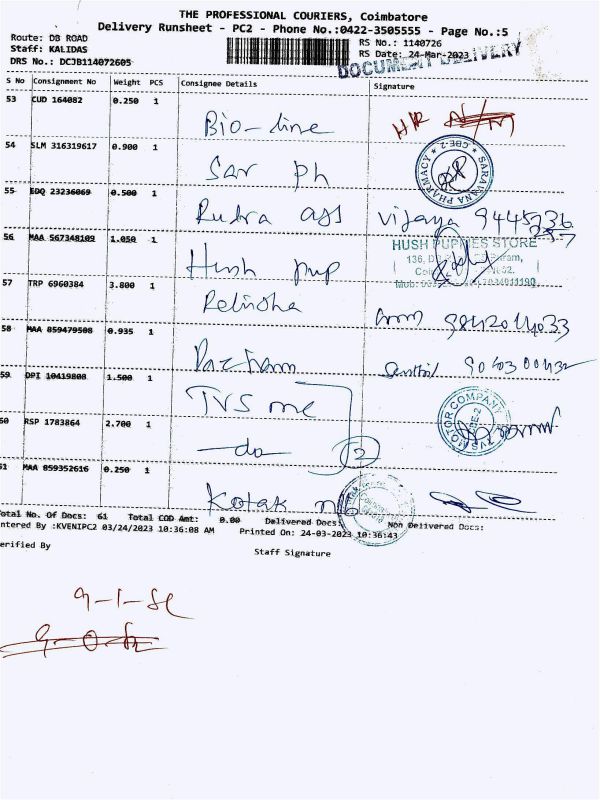 THE PROFESSIONAL COURIERS, Coimbatore
Delivery Runsheet - PC2 - Phone No.:0422-3505555 - Page No.:5
Route: DB ROAD
Staff: KALIDAS
DRS No.: DCJB114072605
RS No.: 1140726
RS Date: 24-Mar-2023
DOCUMENT DELIVERY
S No Consignment No Weight PCS Consignee Details Signature
53 CUD 164082 0.250 1
Bio-line HR
54 SLM 316319617 0.900 1
Sar ph
SARAVANA PHARMACY CBE-2
55 EDQ 23236069 0.500 1
Rudra ags vijaya 9445736
257
56 MAA 567348109 1.050 1
Hush pup
HUSH PUPPIES STORE
136,
57 TRP 6960384 3.800 1
9842014033
58 MAA 859479508 0.935 1
59 DPI 10419808 1.500 1
TVS mc
MOTOR COMPANY
60 RSP 1783864 2.700 1
do 2
61 MAA 859352616 0.250 1
Kotak
Total No. Of Docs: 61 Total COD Amt: 0.00 Delivered Docs: Non Delivered Docs:
ntered By :KVENIPC2 03/24/2023 10:36:08 AM Printed On: 24-03-2023 10:36:43
erified By
Staff Signature